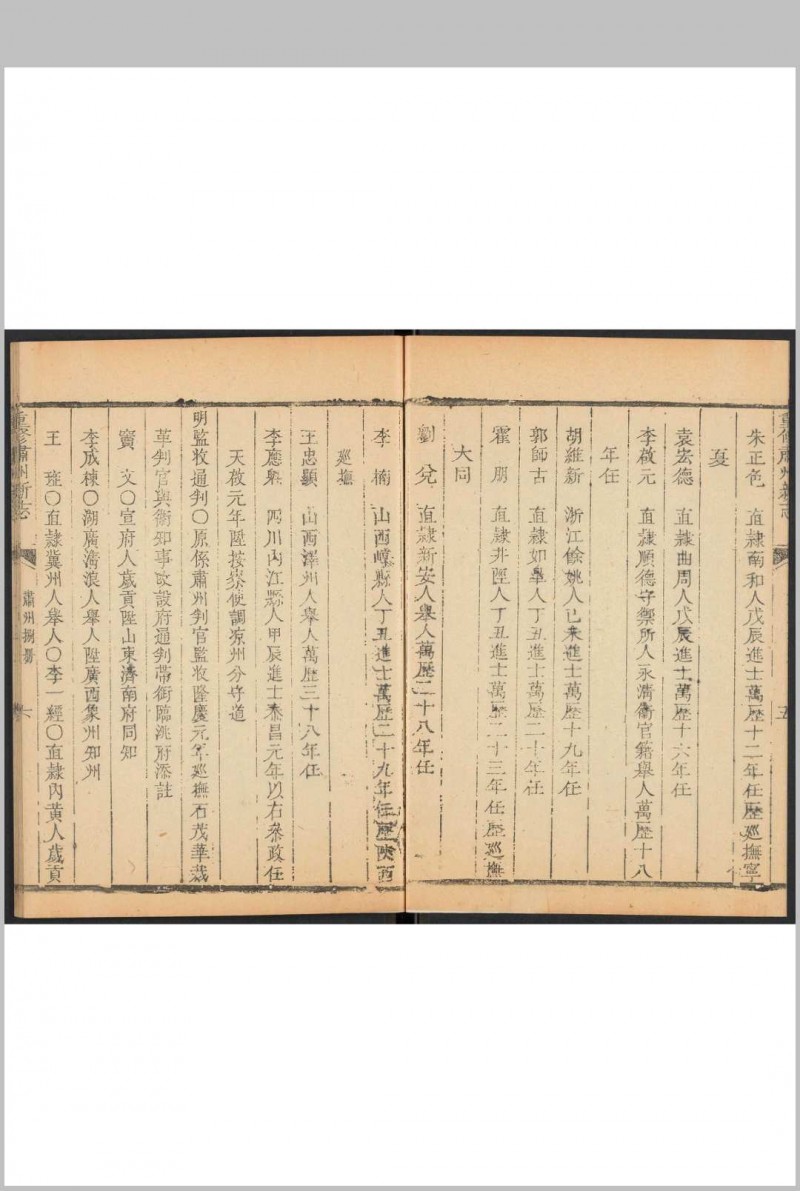 重修肅州新志
五
朱正色 直隸南和人戊辰進士萬歷十二年任歷巡撫寧
夏
袁宏德 直隸曲周人戊辰進士萬歷十六年任
李啟元 直隸順德守禦所人永濟衛官籍舉人萬歷十八
年任
胡維新 浙江餘姚人己未進士萬歷十九年任
郭師古 直隸如皋人丁丑進士萬歷二十年任
霍 朋 直隸井陘人丁丑進士萬歷二十三年任歷巡撫
大同
劉 兌 直隸新安人舉人萬歷二十八年任
李 楠 山西崞縣人丁丑進士萬歷二十九年任歷陝西
巡撫
王忠顯 山西澤州人舉人萬歷三十八年任
李應 四川內江縣人甲辰進士泰昌元年以右叅政任
天啟元年陞按察使調凉州分守道
明監收通判〇原係肅州判官監收隆慶元年巡撫石茂華裁
革判官與衛知事改設府通判帶銜臨洮府添註
竇 文〇宣府人歲貢陞山東濟南府同知
李成棟〇湖廣清浪人舉人陞廣西象州知州
王 〇直隸冀州人舉人〇李一經〇直隸內黃人歲貢
重修肅州新志
肅州捌册
六